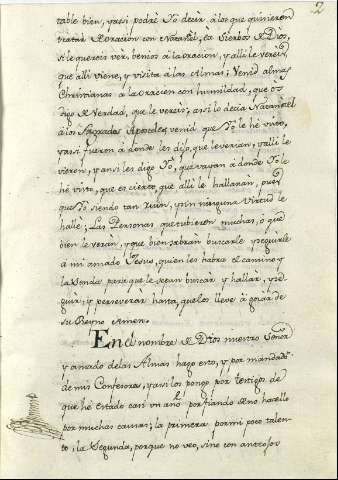 2
table bien, y assi podrè Yo decir à los que quisieren
tratar de oracion con Natanael, los Siervos de Dios,
si le quereis ver, benios à la oracion, y alli le vereis,
que alli viene, y visita à las Almas: Venid almas
Christianas à la oracion con humildad, que os
digo de Verdad, que le vereis; assi lo decia Natanael
à los Sagrados Apostoles, venid, que Yo le hè visto,
y assi fueron à donde les dijo, que le verian, y alli le
vieron, y ansi les digo Yo, que vayan à donde Yo le
hè visto, que es cierto, que alli le hallaràn, pues
que Yo siendo tan Ruin, y sin ninguna Virtud le
hallè; Las Personas que tubieren muchas, ò que
bien le veràn, y que bien sabràn buscarle y seguirle
a mi amado Jesus, quien les habra el camino y
la senda, para que le sepan buscar y hallar, y se-
guir, y perseverar hasta, que los lleve à goçar de
su Reyno Amen.
En el nombre de Dios nuestro Señor
y amado de las Almas hago esto, y por mandado
de mis Confesores, y assi los pongo por testigos, de
que hè estado casi un año porfiando de no hacello
por muchas causas; la primera por mi poco talen-
to; la Segunda, porque no veo, sino con antojos